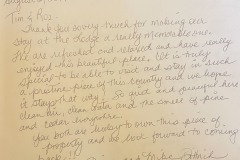 Tim & Rus -
Thank you very much for making our
stay at the lodge a really memorable one.
We are refreshed and relaxed and have really
enjoyed this beautiful place. It is truly
special to be able to visit and stay in such
a pristine piece of this country and we hope
it stays that way. So quiet and peaceful here
clean air, clean water and the smell of pine
and cedar everywhere.
You both are lucky to own this piece of
property and we look forward to coming
back